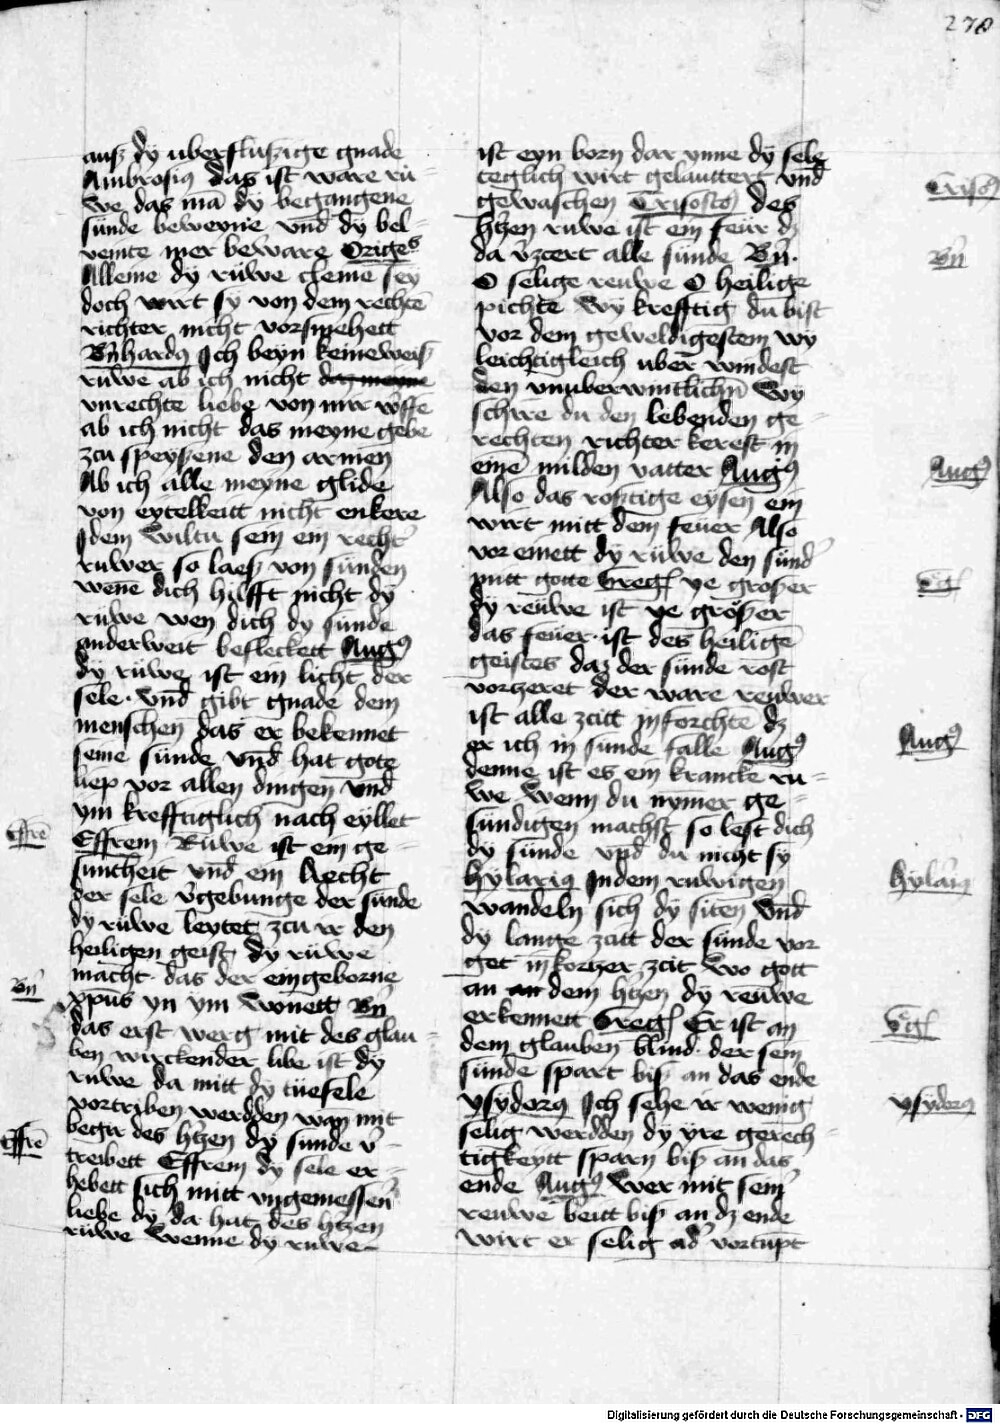 270
ausz dy uberfluszige gnade
Ambrosius das ist ware rü-
we das mā dy begangene
sünde beweyne vnd dy bel-
veinte mer beware Origeˢ
Alleine dy rüwe cleine sey
doch wirt sy von dem rechtē
richter nicht vorsmehett
Bn̄hardꝰ Ich beyn keineweisz
rüwē ab ich nicht daz meyne
vnrechte liebe von mir
ab ich nicht das meyne gebe
zcu speyszene den armen
Ab ich alle meyne glide
von eytelkeitt nicht enkere
Idem Wiltu sein ein recht'
ruwer so laesz von sünden
wenē dich hilfft nicht dy
rüwe wen dich dy sünde
anderweit befleckett Augꝰ
dy rüwe ist ein licht der
sele · vnd gibt gnade dem
menschen das er bekennet
seine sünde vnd hat gote
liep vor allen dingen vnd
ym krefftiglich nach eyllet
Effrem Rüwe ist ein ge-
suntheit vnd ein Aecht
der sele v̄gebunge der sünde
dy rüwe leytet zcu ir den
heiligen geist dy rüwe
macht · das der eingeborne
xp̄us yn ym wonett Bn̄
das erst werg mit des glau-
ben wirckender libe ist dy
ruwe da mitt dy tüefele
vortriben werdden wan mit
begir des h'tzen dy sunde v̄-
treibett Effrem dy sele er-
hebett sich mitt vngemessen'
liebe dy da hat des h'tzen
rüwe Wenne dy ruwe
effrē
Bn̄
Effrē
ist eyn born dar ynne dy sele
teglich wirt gelauttert vnd
gewaschen Crisostꝰ des
h'tzen ruwe ist ein feür dz
da v'zcert alle sünde Bn̄ ·
O selige reuwe O heilige
pichte Wy krefftig du bist
vor dem geweldigestem wy
leichtigleich uber windest
den vnuberwintlichn̄ Wy
schire du den lebenden ge-
rechten richter kerest in
einē milden vatter Augꝰ
Also das rosztige eysen ein
wirt mitt dem feüer Also
vor einett dy rüwe den sünd'
mitt gotte Greg ye groszer
dy reüwe ist ye gröszer
das feüer · ist des heiligē
geistes daz der sünde rost
vorzeret der ware reuwer
ist alle zcitt in forchte dz
er ich in sunde falle Augꝰ
denne ist es ein krancke rü-
we Wenn du nymer ge-
sündigen machst so lest dich
dy sünde vnd du nicht sy
Hylariꝰ Indem ruwigen
wandeln sich dy siten vnd
dy lange zcitt der sünde vor
get in korczer zcit Wo gott
an an dem h'tzen dy reüwe
erkennett Greg Er ist an
dem glauben blind · der sein
sünde spart bisz an das ende
ysydorꝰ Ich sehe ir wenig
selig werdden dy yre gerech-
tigkeytt sparn bisz an das
ende Augꝰ Wer mit sein'
reuwe beitt bisz an dz ende
wirt er selig ad' vortupt
Crisosꝰ
Bn̄
Augꝰ
Augꝰ
hylariꝰ
ysydorꝰ
Digitalisierung gefördert durch die Deutsche Forschungsgemeinschaft - DFG